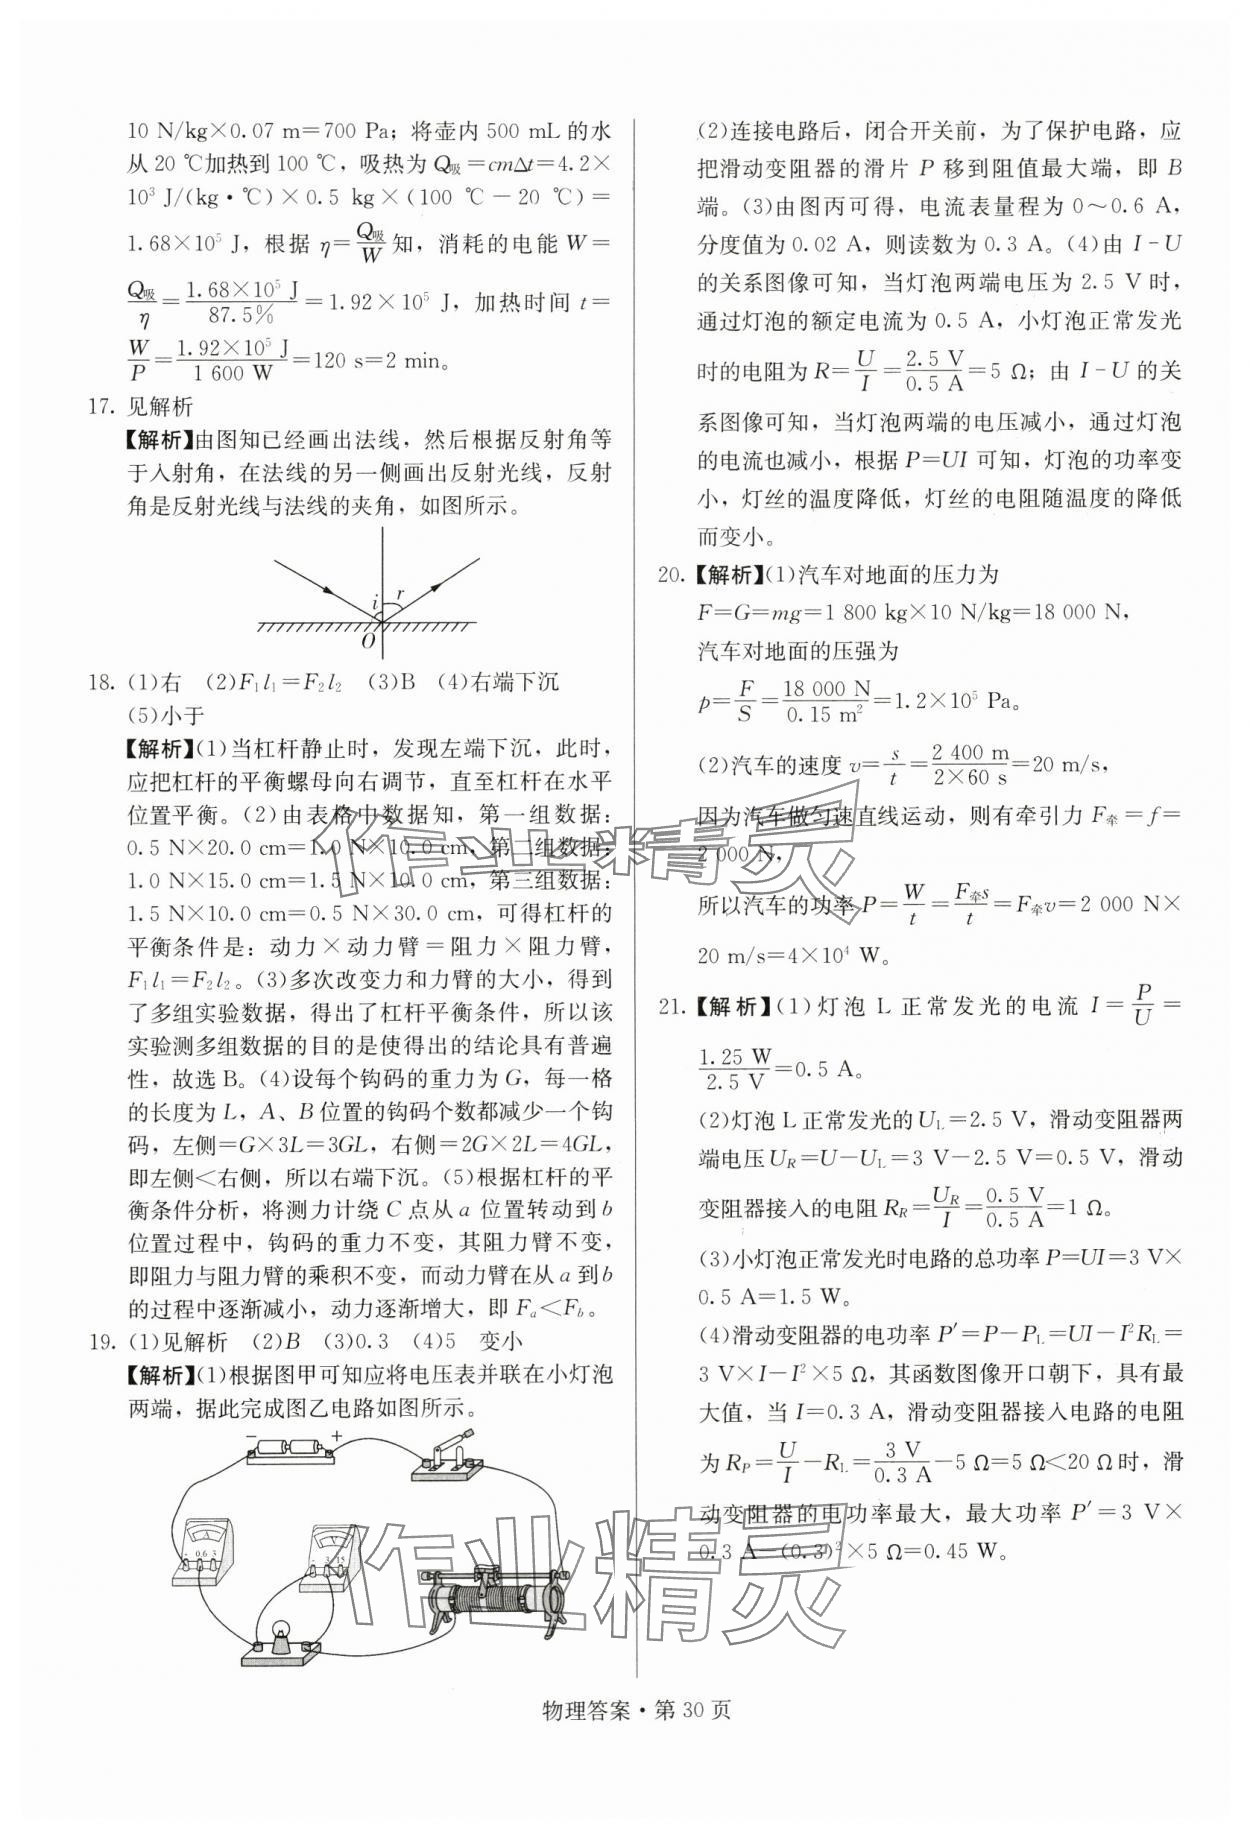 10 N/kg×0.07 m=700 Pa；将壶内 500 mL 的水
从 20 ℃加热到 100 ℃，吸热为 Q吸=cmΔt=4.2×
10³ J/(kg·℃)×0.5 kg×(100 ℃-20 ℃)=
1.68×10⁵ J，根据 η=Q吸/W 知，消耗的电能 W=
Q吸/η=1.68×10⁵ J/87.5%=1.92×10⁵ J，加热时间 t=
W/P=1.92×10⁵ J/1 600 W=120 s=2 min。
17. 见解析
【解析】由图知已经画出法线，然后根据反射角等
于入射角，在法线的另一侧画出反射光线，反射
角是反射光线与法线的夹角，如图所示。
i r
O
18. (1)右 (2)F₁l₁=F₂l₂ (3)B (4)右端下沉
(5)小于
【解析】(1)当杠杆静止时，发现左端下沉，此时，
应把杠杆的平衡螺母向右调节，直至杠杆在水平
位置平衡。(2)由表格中数据知，第一组数据：
0.5 N×20.0 cm=1.0 N×10.0 cm，第二组数据：
1.0 N×15.0 cm=1.5 N×10.0 cm，第三组数据：
1.5 N×10.0 cm=0.5 N×30.0 cm，可得杠杆的
平衡条件是：动力×动力臂=阻力×阻力臂，
F₁l₁=F₂l₂。(3)多次改变力和力臂的大小，得到
了多组实验数据，得出了杠杆平衡条件，所以该
实验测多组数据的目的是使得出的结论具有普遍
性，故选 B。(4)设每个钩码的重力为 G，每一格
的长度为 L，A、B 位置的钩码个数都减少一个钩
码，左侧=G×3L=3GL，右侧=2G×2L=4GL，
即左侧<右侧，所以右端下沉。(5)根据杠杆的平
衡条件分析，将测力计绕 C 点从 a 位置转动到 b
位置过程中，钩码的重力不变，其阻力臂不变，
即阻力与阻力臂的乘积不变，而动力臂在从 a 到 b
的过程中逐渐减小，动力逐渐增大，即 Fa<Fb。
19. (1)见解析 (2)B (3)0.3 (4)5 变小
【解析】(1)根据图甲可知应将电压表并联在小灯泡
两端，据此完成图乙电路如图所示。
- +
A
- 0.6 3
V
- 3 15
(2)连接电路后，闭合开关前，为了保护电路，应
把滑动变阻器的滑片 P 移到阻值最大端，即 B
端。(3)由图丙可得，电流表量程为 0～0.6 A，
分度值为 0.02 A，则读数为 0.3 A。(4)由 I-U
的关系图像可知，当灯泡两端电压为 2.5 V 时，
通过灯泡的额定电流为 0.5 A，小灯泡正常发光
时的电阻为 R=U/I=2.5 V/0.5 A=5 Ω；由 I-U 的关
系图像可知，当灯泡两端的电压减小，通过灯泡
的电流也减小，根据 P=UI 可知，灯泡的功率变
小，灯丝的温度降低，灯丝的电阻随温度的降低
而变小。
20. 【解析】(1)汽车对地面的压力为
F=G=mg=1 800 kg×10 N/kg=18 000 N，
汽车对地面的压强为
p=F/S=18 000 N/0.15 m²=1.2×10⁵ Pa。
(2)汽车的速度 v=s/t=2 400 m/2×60 s=20 m/s，
因为汽车做匀速直线运动，则有牵引力 F牵=f=
2 000 N，
所以汽车的功率 P=W/t=F牵s/t=F牵v=2 000 N×
20 m/s=4×10⁴ W。
21. 【解析】(1)灯泡 L 正常发光的电流 I=P/U=
1.25 W/2.5 V=0.5 A。
(2)灯泡 L 正常发光的 U_L=2.5 V，滑动变阻器两
端电压 U_R=U-U_L=3 V-2.5 V=0.5 V，滑动
变阻器接入的电阻 R_R=U_R/I=0.5 V/0.5 A=1 Ω。
(3)小灯泡正常发光时电路的总功率 P=UI=3 V×
0.5 A=1.5 W。
(4)滑动变阻器的电功率 P′=P-P_L=UI-I²R_L=
3 V×I-I²×5 Ω，其函数图像开口朝下，具有最
大值，当 I=0.3 A，滑动变阻器接入电路的电阻
为 R_P=U/I-R_L=3 V/0.3 A-5 Ω=5 Ω<20 Ω时，滑
动变阻器的电功率最大，最大功率 P′=3 V×
0.3 A-(0.3)²×5 Ω=0.45 W。
作业精灵
作业精灵
物理答案·第 30 页